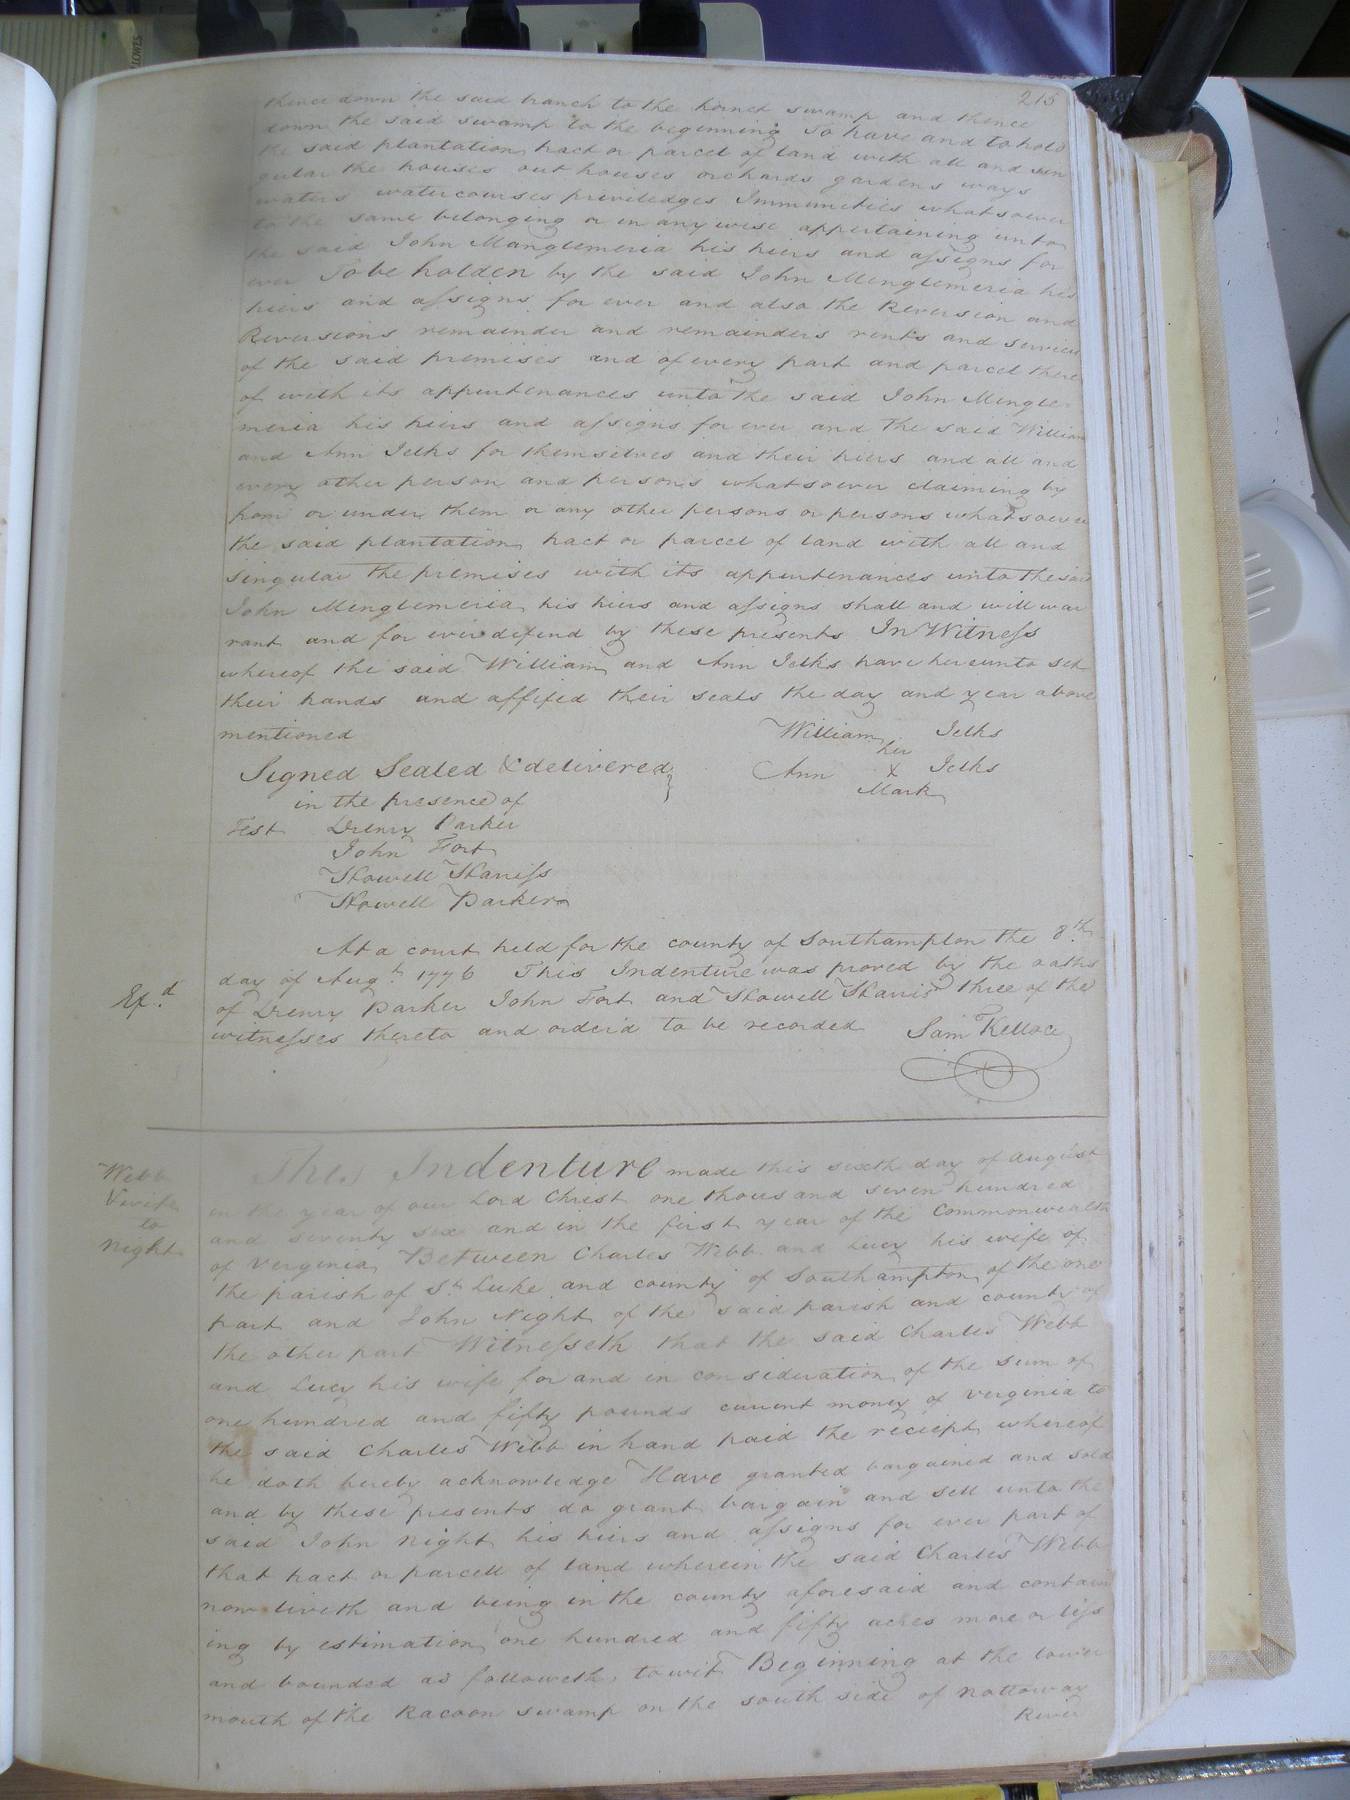 215
thence down the said branch to the horned swamp and thence
down the said swamp to the beginning To have and to hold
the said plantation tract or parcel of land with all and sin
gular the houses out houses orchards gardens ways
waters watercourses priviledges Immuneties whatsoever
to the same belonging or in any wise appertaining unto
the said John Manglemeria his heirs and assigns for
ever To be holden by the said John Menglemeria his
heirs and assigns for ever and also the Reversion and
Reversions remainder and remainders rents and services
of the said premises and of every part and parcel there
of with its appurtenances unto the said John Mengle-
meria his heirs and assigns for ever and the said William
and Ann Jelks for themselves and their heirs and all and
every other person and persons whatsoever claiming by
from or under them or any other persons or persons whatsoever
the said plantation tract or parcel of land with all and
singular the premises with its appurtenances unto the said
John Menglemeria his heirs and assigns shall and will war
rant and for ever defend by these presents In Witness
whereof the said William and Ann Jelks have hereunto set
their hands and affixed their seals the day and year above
mentioned
William Jelks
her
Ann X Jelks
Mark
Signed Sealed & delivered
in the presence of
Test Drewry Parker
John Fort
Howell Harriss
Howell Parker
At a court held for the county of Southampton the 8th
day of Augt. 1776 This Indenture was proved by the oaths
of Drewry Parker John Fort and Howell Harris three of the
witnesses thereto and orderd to be recorded
Sam Kelloce
Exd.
Webb
& wife
to
Night
This Indenture made this sixth day of august
in the year of our Lord Christ one thousand seven hundred
and seventy six and in the first year of the Commonwealth
of Verginia Between Charles Webb and Lucy his wife of
the parish of St. Luke and county of Southampton of the one
part and John Night of the said parish and county of
the other part Witnesseth that the said Charles Webb
and Lucy his wife for and in consideration of the sum of
one hundred and fifty pounds current money of verginia to
the said Charles Webb in hand paid the reciept whereof
he doth hereby acknowledge Have granted bargained and sold
and by these presents do grant bargain and sell unto the
said John Night his heirs and assigns for ever part of
that tract or parcell of land wherein the said Charles Webb
now liveth and being in the county aforesaid and contain
ing by estimation one hundred and fifty acres more or less
and bounded as followeth, towit Beginning at the lower
mouth of the Racoon swamp on the south side of nottoway
River